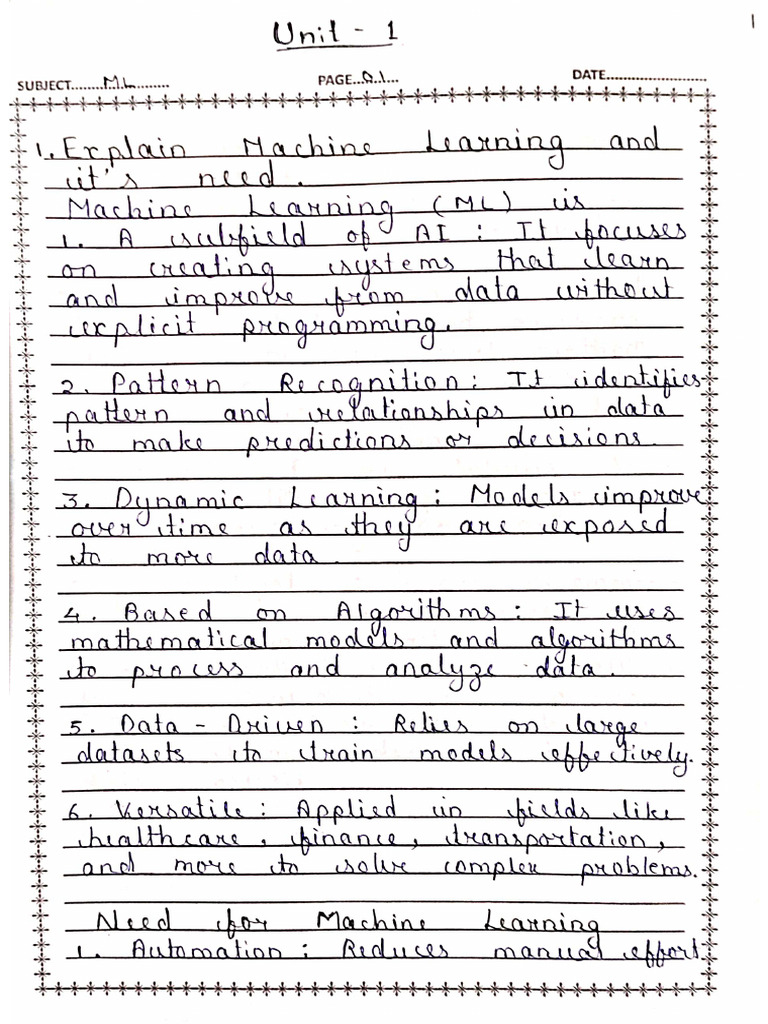 Unit - 1
1
SUBJECT........M.L......... PAGE...Q.1... DATE.........................
1. Explain Machine Learning and
it's need.
Machine Learning (ML) is
1. A subfield of AI : It focuses
on creating systems that learn
and improve from data without
explicit programming.
2. Pattern Recognition : It identifies
pattern and relationships in data
to make predictions or decisions.
3. Dynamic Learning : Models improve
over time as they are exposed
to more data.
4. Based on Algorithms : It uses
mathematical models and algorithms
to process and analyze data.
5. Data - Driven : Relies on large
datasets to train models effectively.
6. Versatile : Applied in fields like
healthcare, finance, transportation,
and more to solve complex problems.
Need for Machine Learning
1. Automation : Reduces manual effort